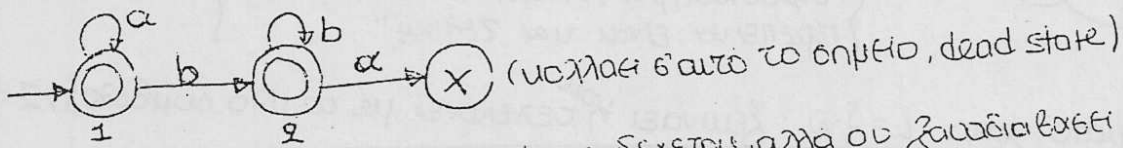 a b
b a X (κολλάει σ'αυτό το σημείο, dead state)
1 2
δέχεται, αλλά αν ξαναδιαβάσει